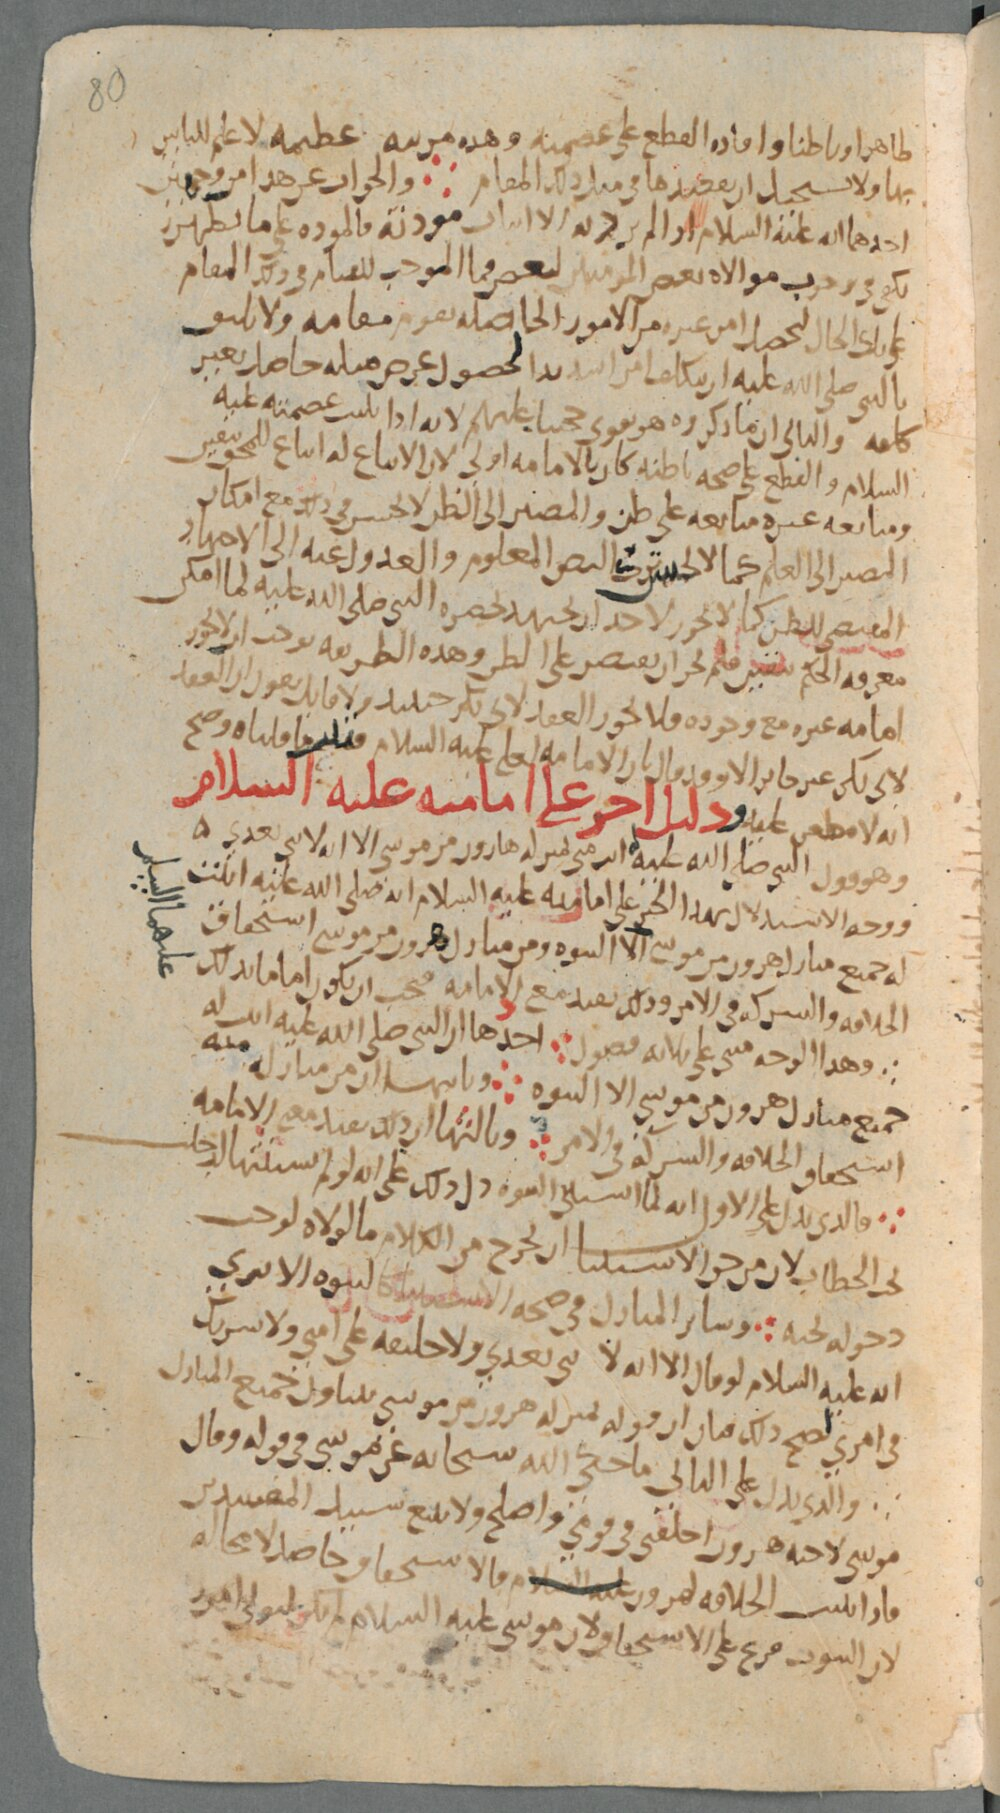 80
ظاهرا وباطنا وافاده القطع على عصمته وهذه مرتبه عظيمه لا علم للناس
بها ولا يستحيل ان يقصدها في مثل ذلك المقام ∴ والجواب عن هذا من وجهين
احدهما انه عليه السلام اذا لم يرد به الا اثبات مودته فالموده على ما يظهر
يكفي في وجوب موالاه بعض المومنين لبعض فما الموجب للقيام في ذلك المقام
على تلك الحال لتحصيل امر غيره من الامور الحاصله يقوم مقامه ولا يليق
بالنبي صلى الله عليه ان يتكلف امرا شديدا لحصول غرض مثله حاصل بغير
كلفه والثاني ان ما ذكروه هو يقوي حجتنا عليهم لانه اذا ثبت عصمته عليه
السلام والقطع على صحه باطنه كان بالامامه اولى لان الاتباع له اتباع للمحق بيقين
ومتابعه غيره متابعه على ظن والمصير الى الظن لا يحسن في ذلك مع امكان
المصير الى العلم كما لا يحسن ترك النص المعلوم والعدول عنه الى الاجتهاد
المقتضي للظن كما لا يجوز لاحد ان يجتهد بحضره النبي صلى الله عليه لما امكن
معرفه الحكم بيقين فلم يجز ان يقتصر على الظن وهذه الطريقه توجب ان لا يجوز
امامه غيره مع وجوده فلا يجوز العقد لابي بكر حينئذ ولا قايل يقول ان العقد
لابي بكر غير جايز الا وقد قال بان الامامه لعلي عليه السلام فثبت ما قلناه وصح
انه لا مطعن عليه ودليل اخر على امامته عليه السلام
وهو قول النبي صلى الله عليه انت مني بمنزله هارون من موسى الا انه لا نبي بعدي ه
ووجه الاستدلال بهذا الخبر على امامته عليه السلام انه صلى الله عليه اثبت
له جميع منازل هرون من موسى الا النبوه ومن منازل هرون من موسى استحقاق
عليهما السلم
الخلافه والشركه في الامر وذلك يفيد معنى الامامه فيجب ان يكون اماما بذلك
∴ وهذا الوجه مبني على ثلاثه فصول ∴ احدها ان النبي صلى الله عليه اثبت له
جميع منازل هرون من موسى الا النبوه ∴ وثانيها ان من منازله منه
استحقاق الخلافه والشركه في الامر ∴ وثالثها ان ذلك يفيد معنى الامامه
∴ فالذي يدل على الاول انه لما استثنى النبوه دل ذلك على انه لو لم يستثنها لدخلت
تحت الخطاب لان من حق الاستثنا ان يخرج من الكلام ما لولاه لوجب
دخوله تحته ∴ وساير المنازل في صحه الاستثنا كالنبوه الا ترى
انه عليه السلام لو قال الا انه لا نبي بعدي ولا خليفه على امتي ولا شريك
في امري لصح ذلك فبان ان قوله بمنزله هرون من موسى يتناول جميع المنازل
∴ والذي يدل على الثاني ما حكى الله سبحانه عن موسى في قوله وقال
موسى لاخيه هرون اخلفني في قومي واصلح ولا تتبع سبيل المفسدين
فاذا ثبت الخلافه لهرون عليه السلام فالاستحقاق حاصل لا محاله
لان الثبوت فرع على الاستحقاق ولان موسى عليه السلام لم يكن ليولي امور